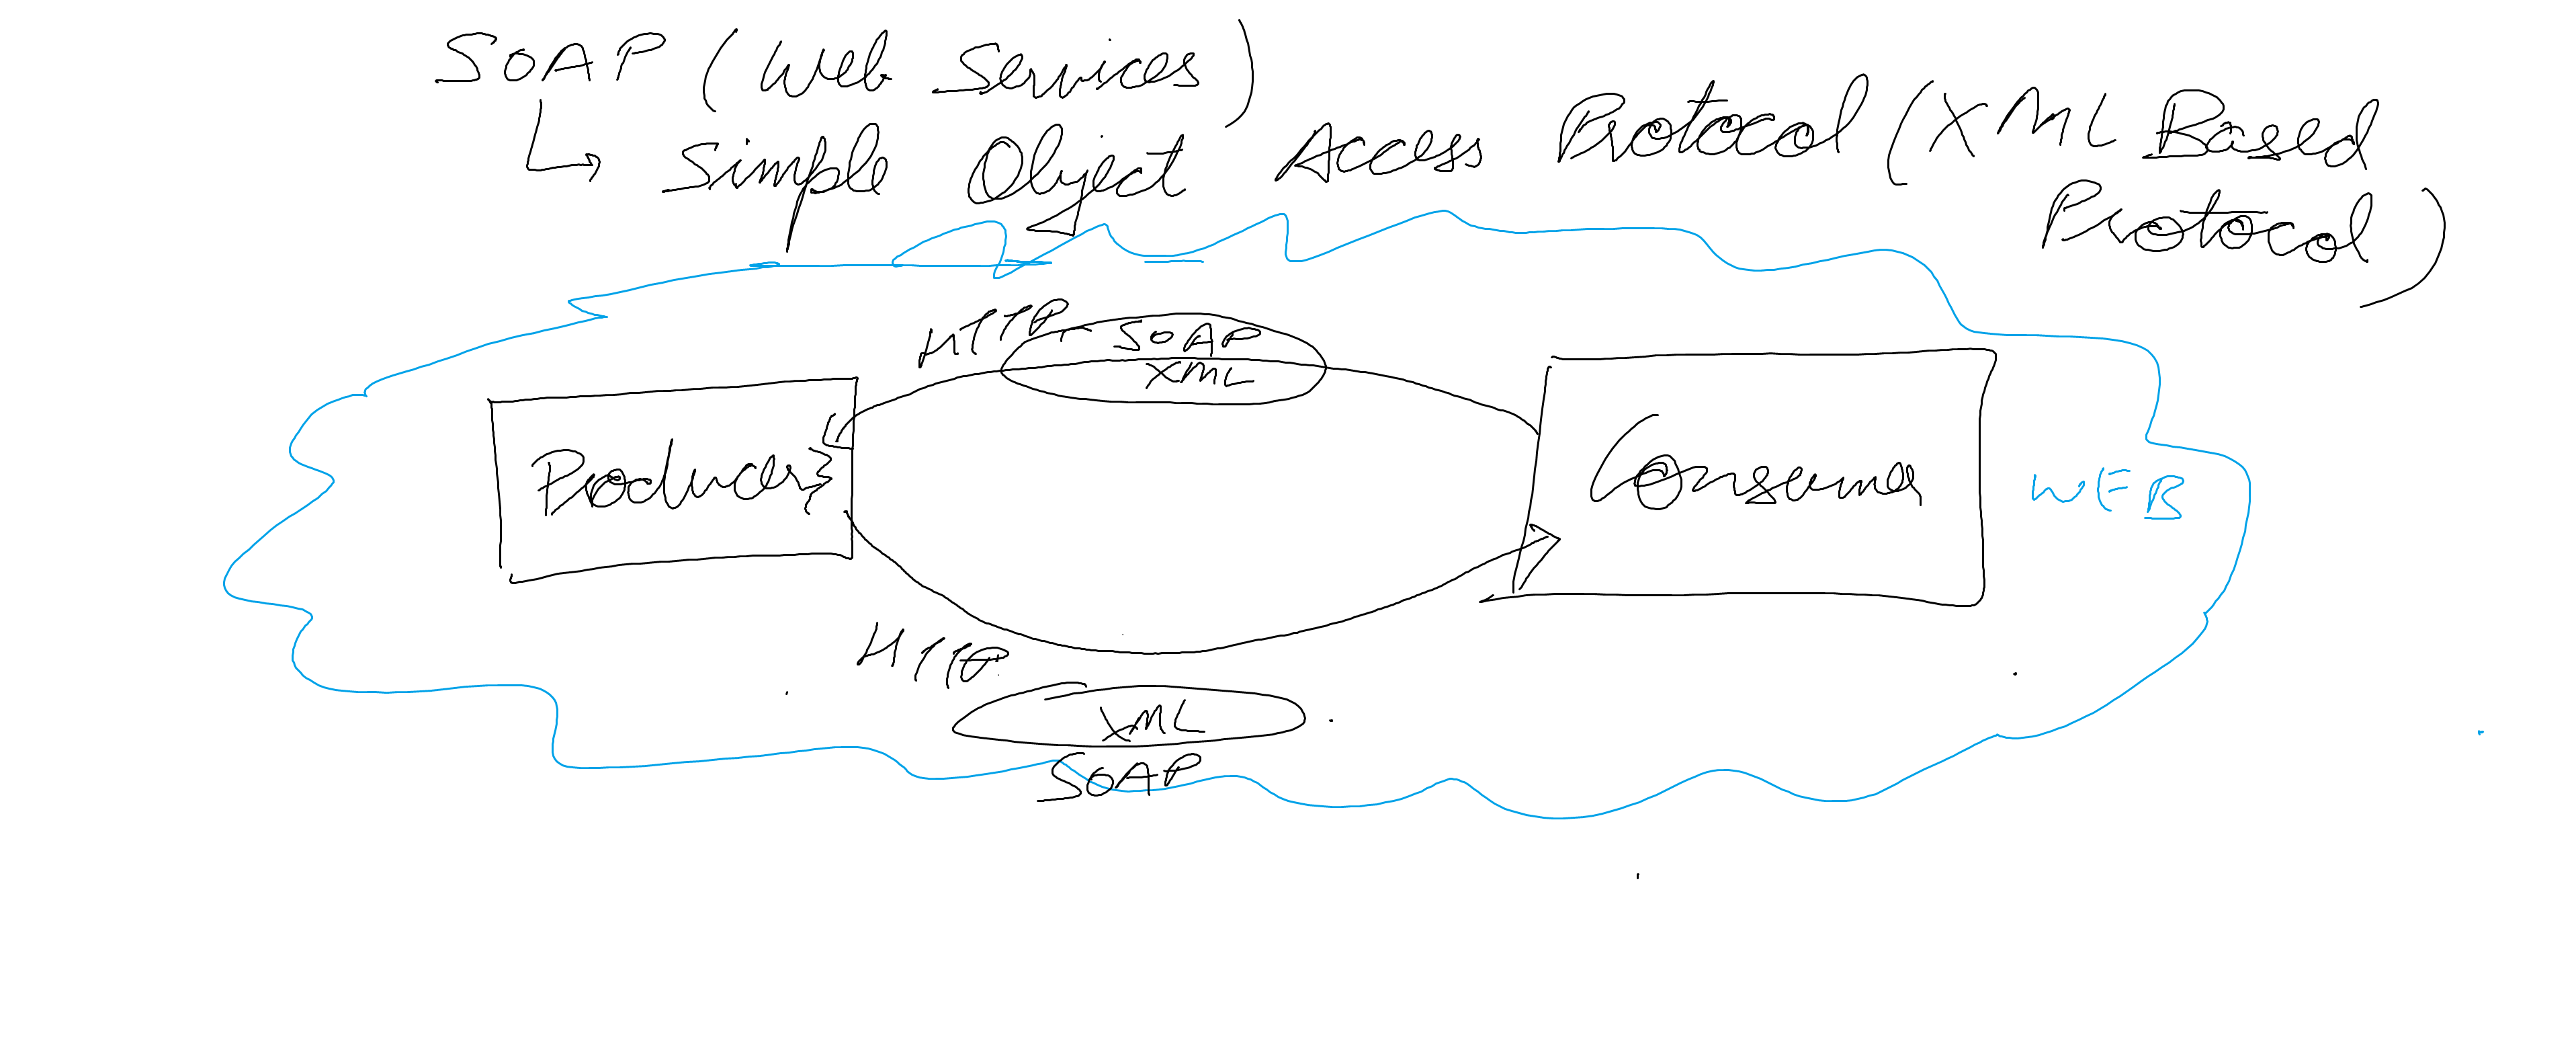 SOAP (Web Services)
↳ Simple Object Access Protocol (XML Based
Protocol)
HTTP SOAP
XML
Producer
Consumer
WEB
HTTP
XML
SOAP